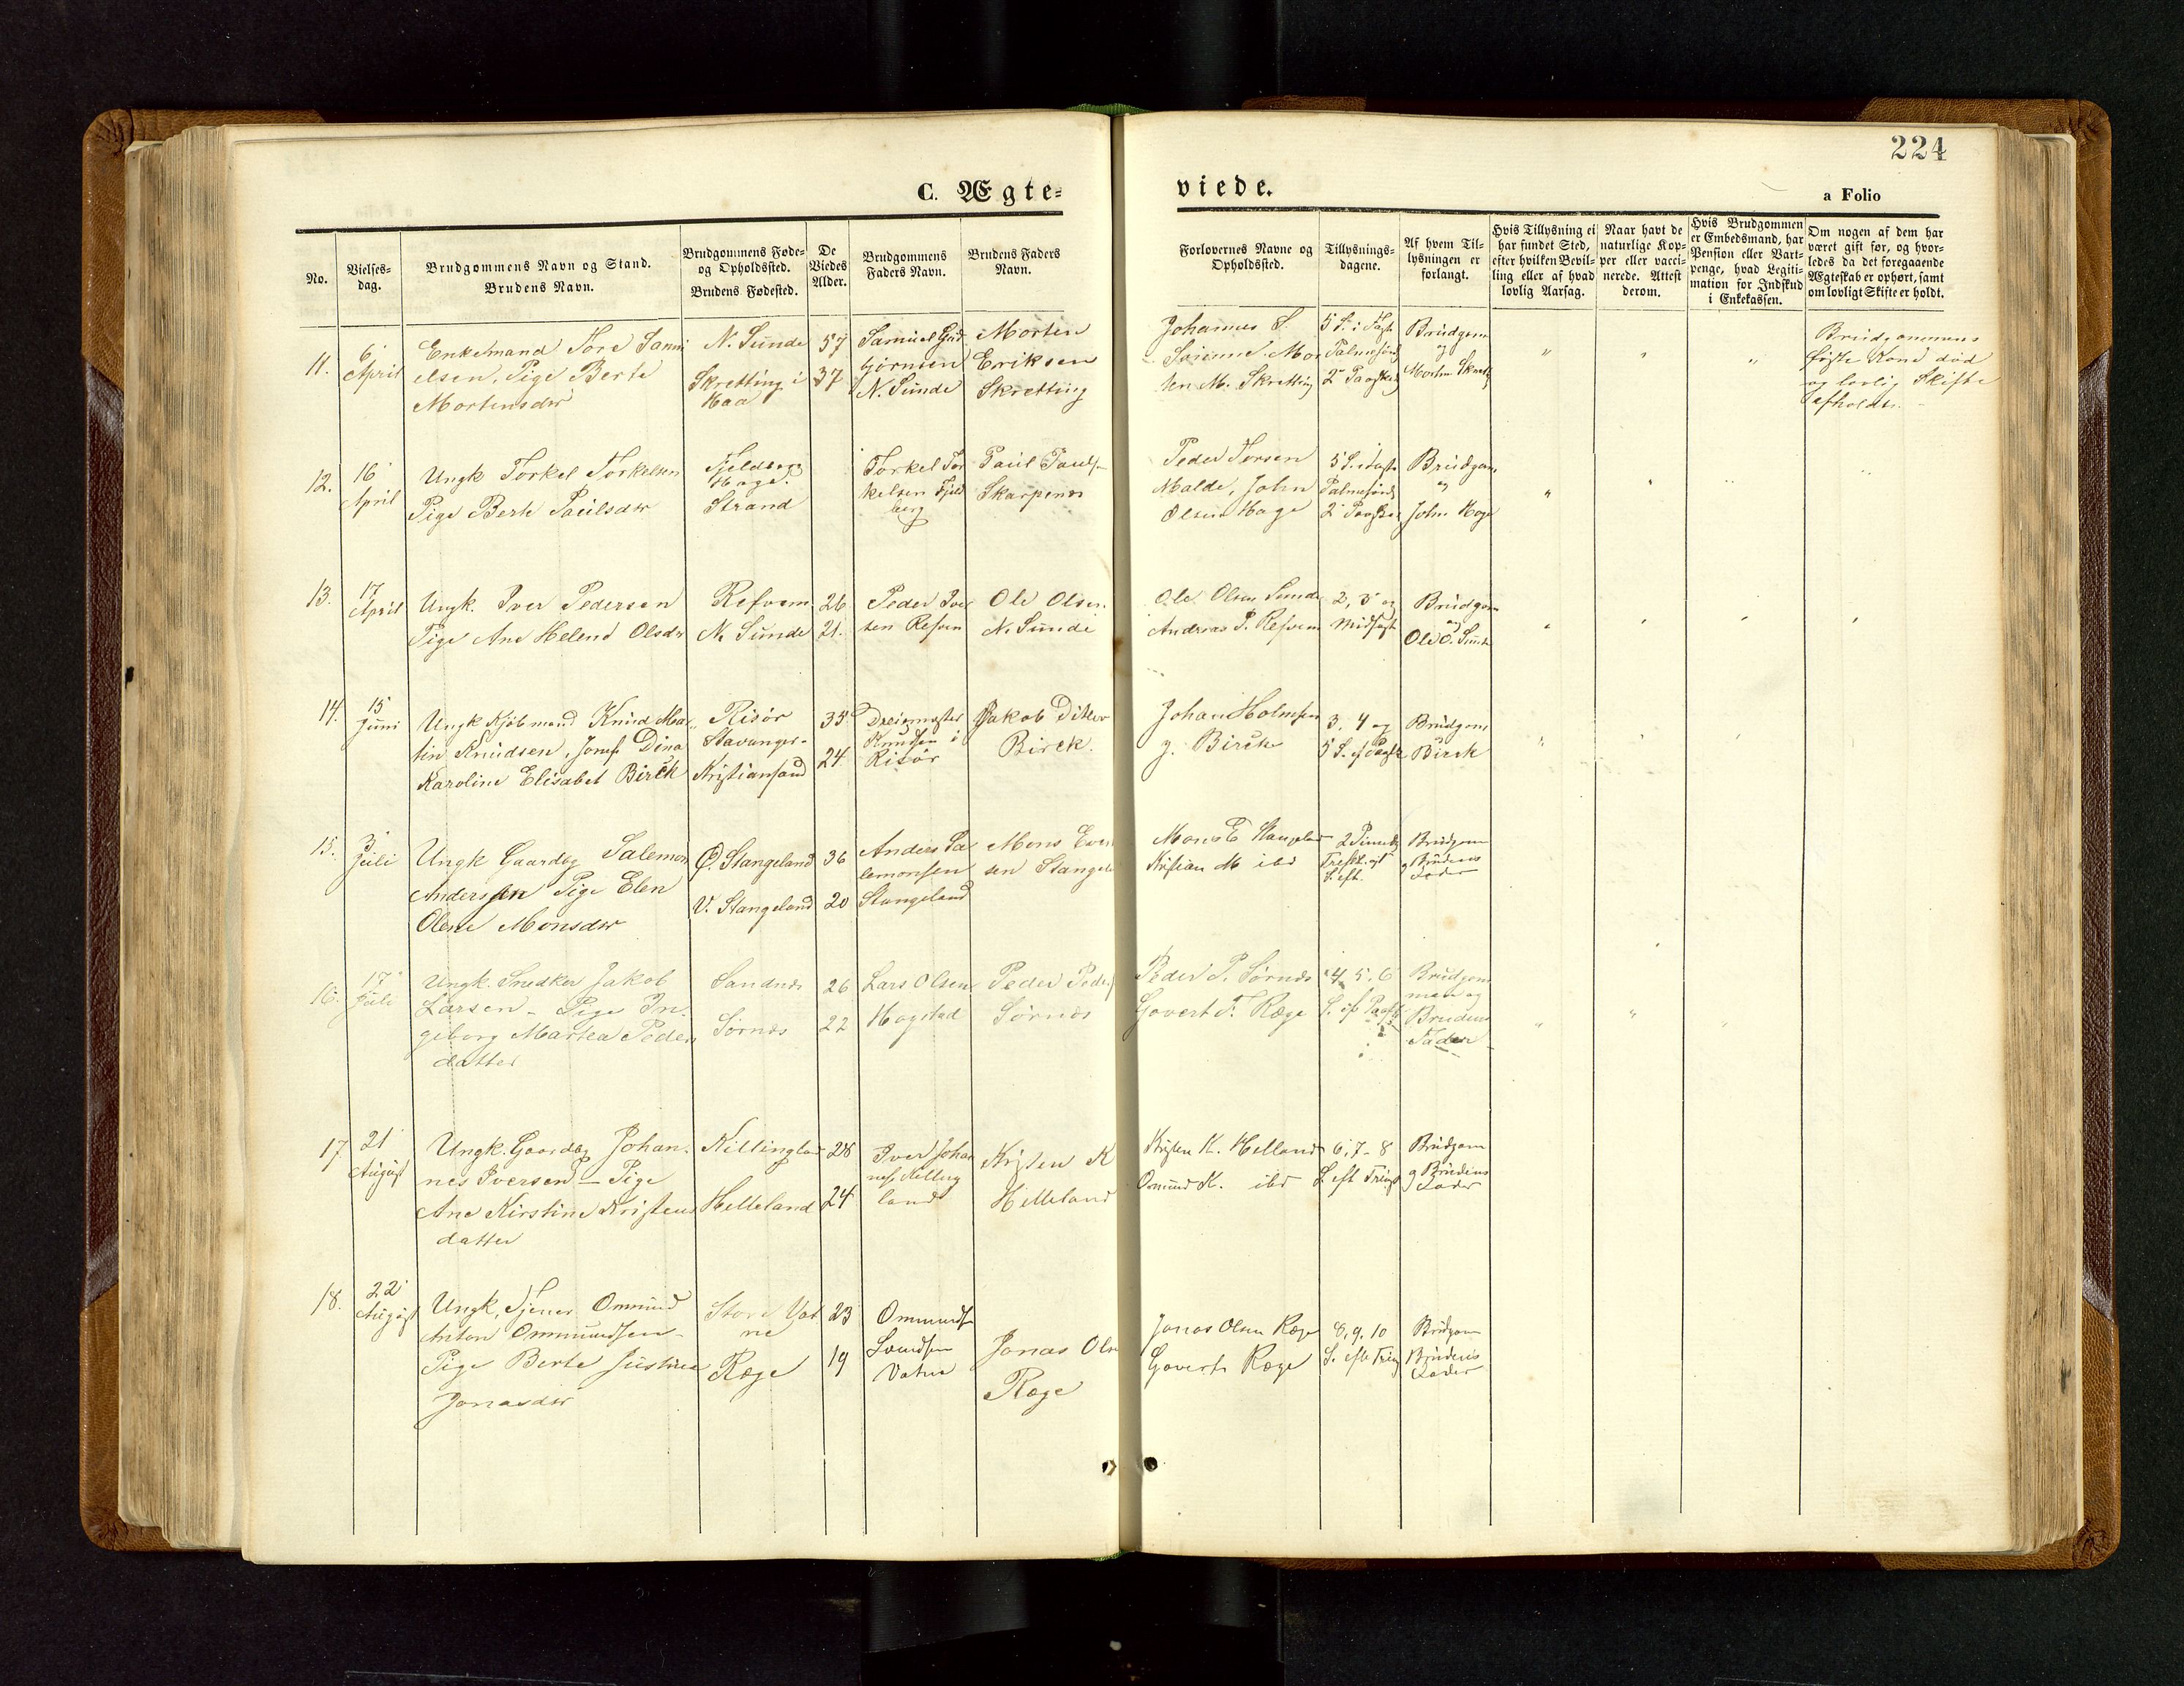 224
C. Ægte=
viede.
a Folio
No.
Vielses-
dag.
Brudgommens Navn og Stand.
Brudens Navn.
Brudgommens Føde-
og Opholdssted.
Brudens Fødested.
De
Viedes
Alder.
Brudgommens
Faders Navn.
Brudens Faders
Navn.
Forlovernes Navne og
Opholdssted.
Tillysnings-
dagene.
Af hvem Til-
lysningen er
forlangt.
Hvis Tillysning ei
har fundet Sted,
efter hvilken Bevil-
ling eller af hvad
lovlig Aarsag.
Naar havt de
naturlige Kop-
per eller vacci-
nerede. Attest
derom.
Hvis Brudgommen
er Embedsmand, har
Pension eller Vart-
penge, hvad Legiti-
mation for Indskud
i Enkekassen.
Om nogen af dem har
været gift før, og hvor-
ledes da det foregaaende
Ægteskab er ophørt, samt
om lovligt Skifte er holdt.
11.
6
April
Enkemand Tore Samu
elsen, Pige Berte
Mortensdtr
N. Sunde
Skretting i
Haa
57
37
Samuel Gud
bjørnsen
N. Sunde
Morten
Eriksen
Skretting
Johannes S.
Sunde Mor
ten M. Skretting
5 S. i Fast
Palmesønd
2 Paaske
Brudgom
og
Morten Skrett
Brudgommens
første Kone død
og lovlig Skifte
afholdt.
12.
16
April
Ungk Torkel Torkelsen
Pige Berte Paulsdtr
Fjeldberg
Hage.
Strand
Torkel Tor
kelsen Fjeld
berg
Paul Pauls
Skarpenes
Peder Torsen
Malde, John
Olsen Hage
5 S. i Faste
Palmesønd
2 Paaske
Brudgom
og
John Hage
13.
17
April
Ungk. Iver Pedersen
Pige Ane Helene Olsdtr
Refvem
N. Sunde
26
21.
Peder Iver
sen Refvem
Ole Olsen
N. Sunde
Ole Olsen Sunde
Andreas P. Refvem
2, 3 og
Midfast
Brudgom
og
Ole O. Sunde
14.
15
Juni
Ungk Kjøbmand Knud Mar
tin Knudsen, Jomf Dina
Karoline Elisabet Birck
Risør
Stavanger
Kristiansand
35
24.
Dreiemester
Knudsen i
Risør
Jakob Ditlev
Birck.
Johan Holmsen
J. Birck
3, 4 og
5 S. ef Paaske
Brudgom
Birck
15.
3
Juli
Ungk Gaardbg Salemon
Anderssen Pige Elen
Olene Monsdtr
Ø. Stangeland
V. Stangeland
36
20
Anders Sa
lemonsen
Stangeland
Mons Even
sen Stangel
Mons E Stangeland
Kristian M ibd
2 Pinsed
Trefst. og
S. eft.
Brudgom
og Brudens
Fader
16.
17
Juli
Ungk. Snedker Jakob
Larsen - Pige In-
geborg Martea Peders
datter
Sandnes
Sørnes
26
22
Lars Olsen
Hogstad
Peder Peders
Sørnes
Peder P. Sørnes
Govert T. Ræge
4, 5, 6
S. eft Paaske
Brudgom
men og
Brudens
Fader
17
21
August
Ungk. Gaardbg Johan-
nes Iversen - Pige
Ane Kirstine Kristens
datter
Killingland
Helleland
28
24
Iver Johan
nes. Killing
land
Kristen K
Helleland
Kristen K. Helland
Omund K. ibd
6, 7 - 8
S. eft Trefst
Brudgom
og Brudens
Fader
18.
22
August
Ungk, Tjener Ommund
Anton Ommundsen -
Pige Berte Justine
Jonasdtr
Store Vat
ne
Ræge
23
19
Ommund
Svendsen
Vatne
Jonas Ols
Ræge
Jonas Olsen Ræge
Govert Ræge
8, 9, 10
S. eft Tref
Brudgom
Brudens
Fader